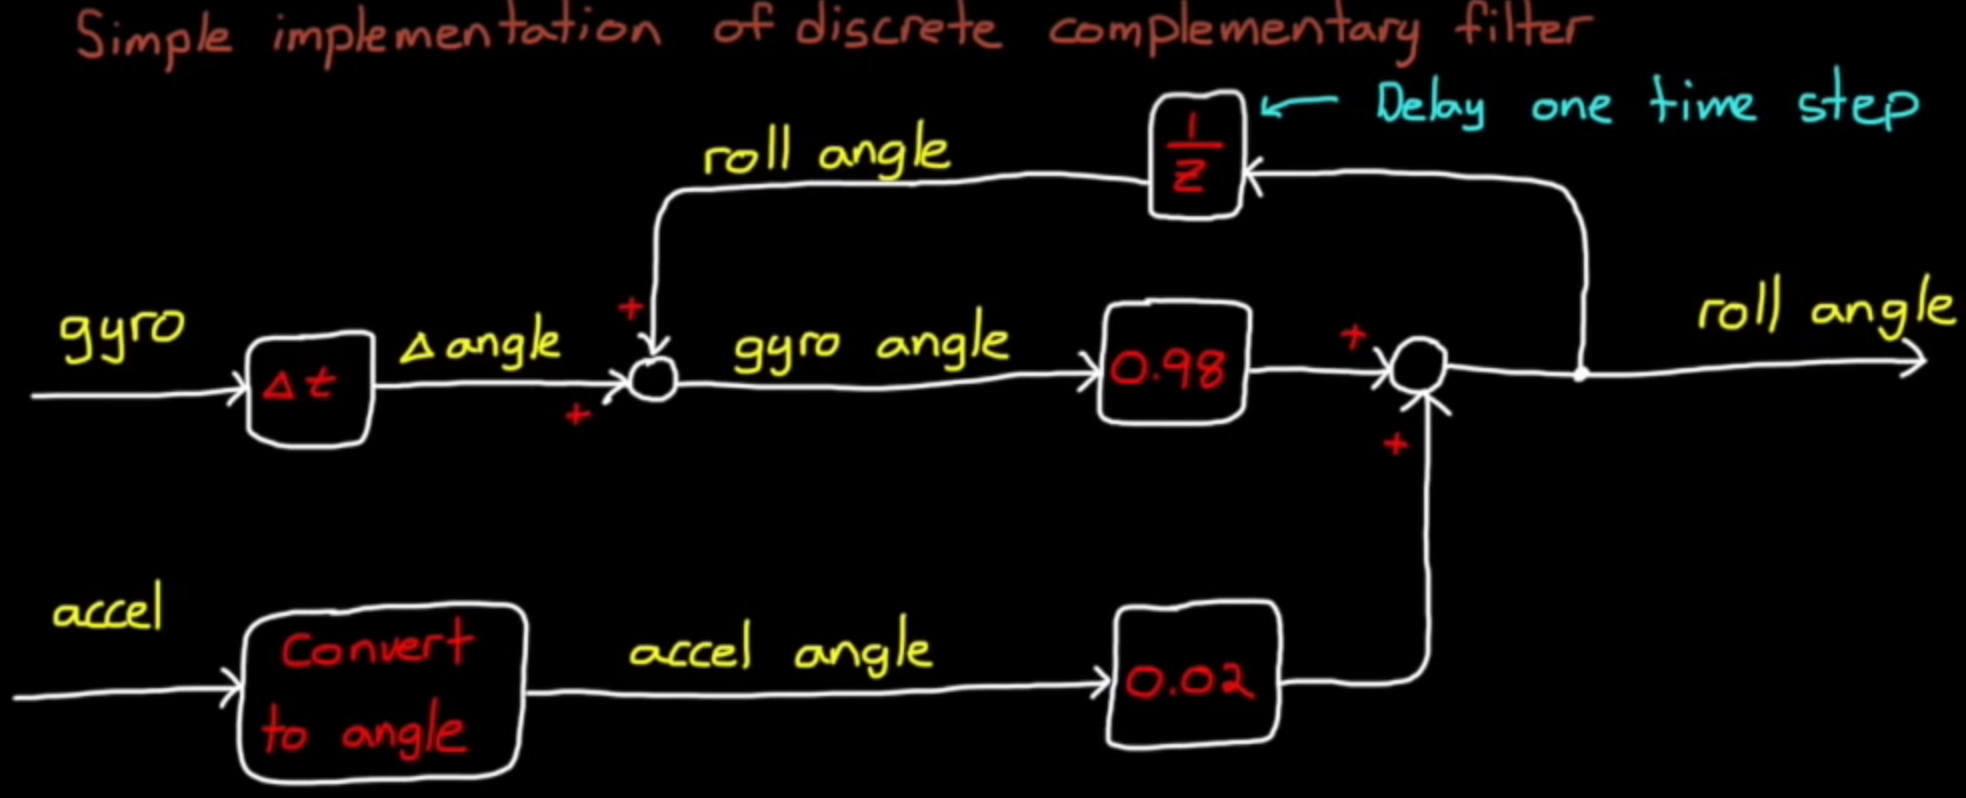 Simple implementation of discrete complementary filter
← Delay one time step
1
z
roll angle
gyro
Δt
Δ angle
+
+
gyro angle
0.98
+
+
roll angle
accel
Convert
to angle
accel angle
0.02